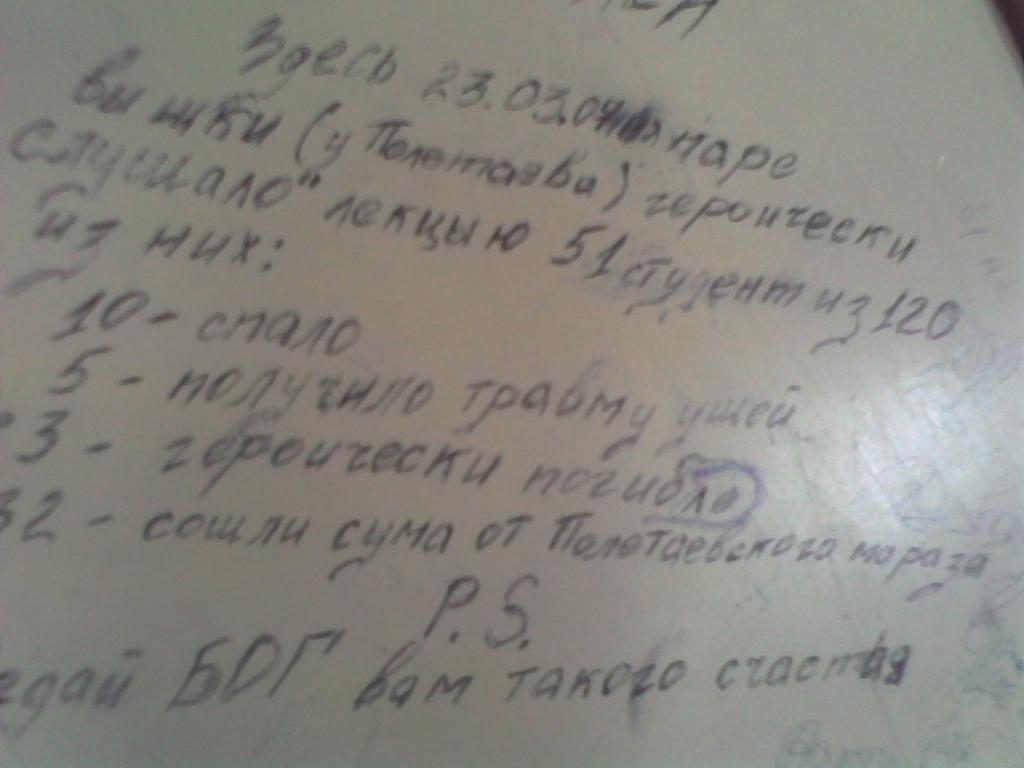 Здесь 23.03.04 на паре
вышки (у Полотаева) героически
слушало" лекцыю 51 студент из 120
из них:
10 - спало
5 - получило травму ушей
3 - героически погибле
32 - сошли сума от Полотаевского мараза
P.S.
недай БОГ вам такого счастия